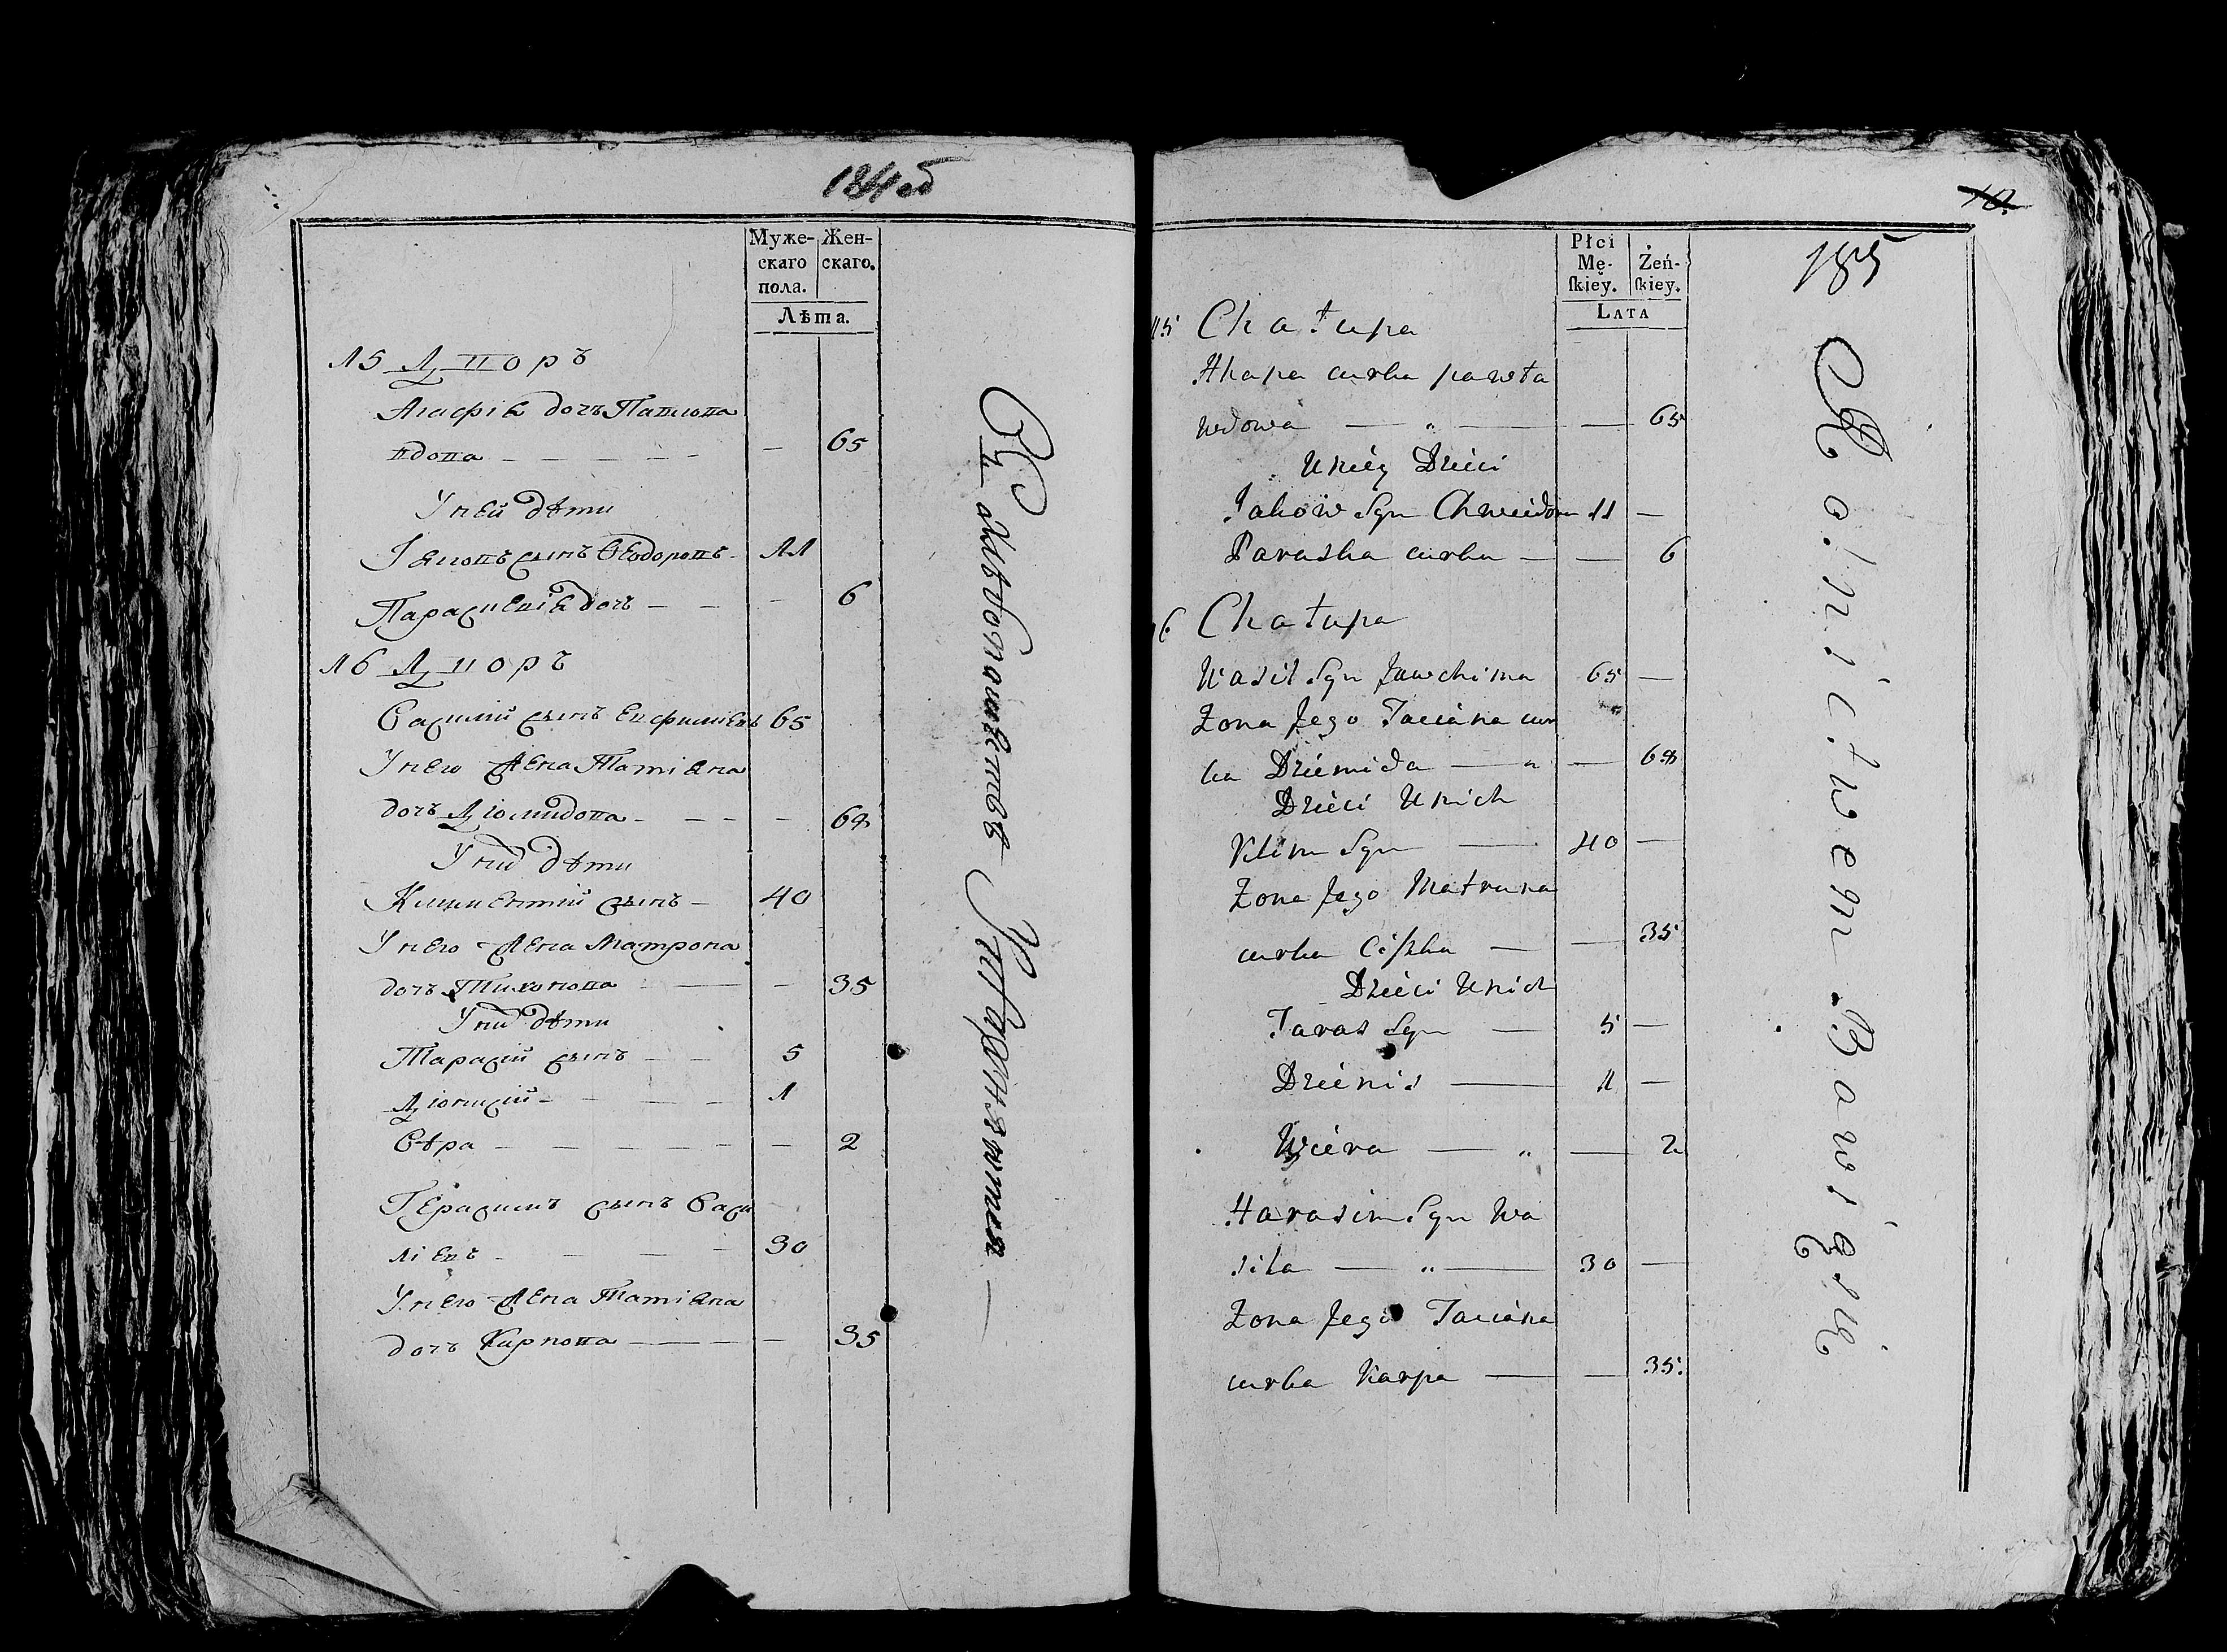 184 об
Муже-
скаго
пола.
Жен-
скаго.
Лѣта.
15 Дворъ
Агафія дочъ Павлова
вдова — — — — — — 65
У ней дѣти
Іяковъ сынъ Ѳеодоровъ - 11
Параскевія дочъ — — - 6
16 Дворъ
Василий сынъ Евфимиевъ 65
У него жена Татіяна
дочъ Діомидова - — — - - 68
У них дѣти
Климентий сынъ — 40
У него жена Матрона
дочъ Тихонова — - 35
У них дѣти
Тарасий сынъ — — 5
Діонисий - — — — 1
Вѣра — — — — — — 2
Герасимъ сынъ Васи
ліевъ - — — — 30
У него жена Татіяна
дочъ Карпова — — — - 35
Въ хлѣбопашествѣ Упражняется —
10.
185
Płci
Mę-
ſkiey.
Żeń-
ſkiey.
LATA
15 Chałupa
Ahapa curka pawła
wdowa — „ — — 65
Uniey Dzieci
Jakow Syn Chwiedora 11 —
Paraska curka — — 6
16 Chałupa
Wasil Syn Jawchima 65 —
Zona Jego Taciana cur
ka Dziemida — „ — 68
Dzieci Unich
Klim Syn — 40 —
Zona Jego Matruna
curka Ciszka — — 35
Dzieci Unich
Taras Syn — 5 —
Dzienis — 1 —
Wiera — „ — 2
Harasim Syn Wa
sila — „ — 30 —
Zona Jego Taciana
curka Karpa — — 35.
Rolnictwem Bawią się